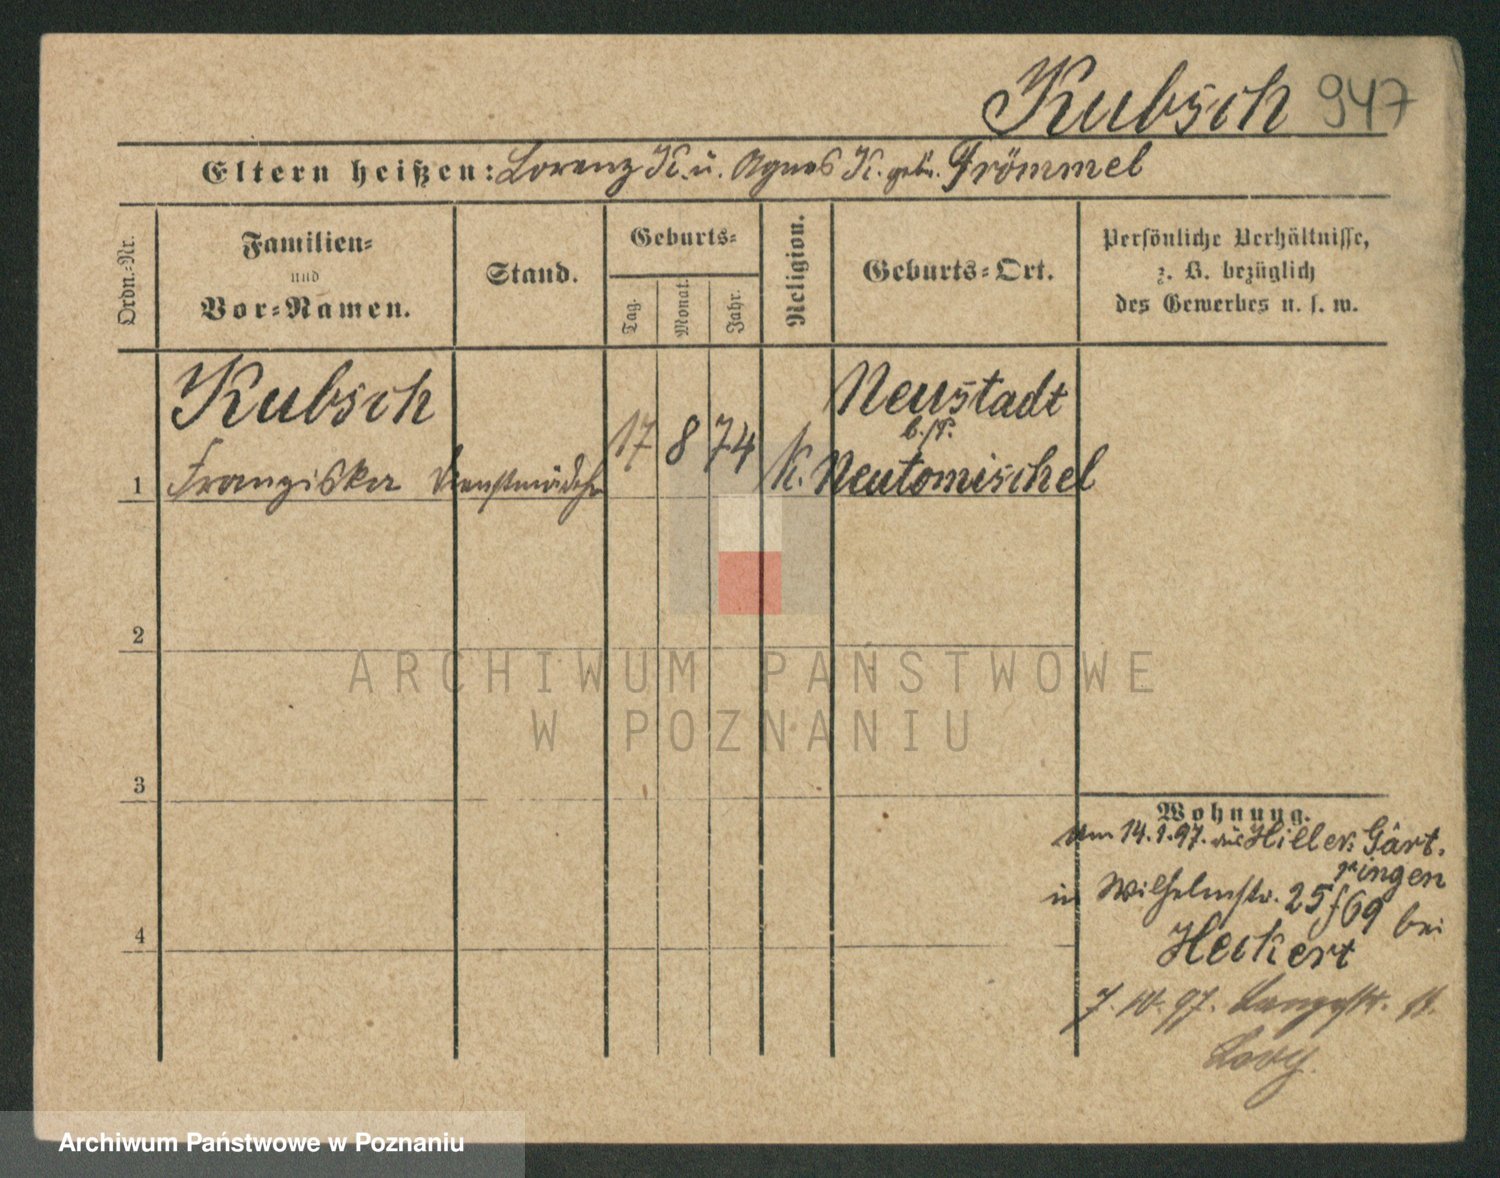 Kubsch 947
Eltern heißen: Lorenz K. u. Agnes K. geb. Frömmel
Ordn.-Nr.
Familien-
und
Vor-Namen.
Stand.
Geburts-
Tag.
Monat.
Jahr.
Religion.
Geburts-Ort.
Persönliche Verhältnisse,
z. B. bezüglich
des Gewerbes u. s. w.
Kubsch
Neustadt
b./P.
1 Franziska Dienstmädchen 17 8 74 K. Neutomischel
2
ARCHIWUM PAŃSTWOWE
W POZNANIU
3
4
Wohnung.
Am 14.1.97. aus Hiller Gärt.
ringen
in Wilhelmstr. 25 f 69 bei
Heckert
7. 10. 97. Langestr. 11.
Archiwum Państwowe w Poznaniu